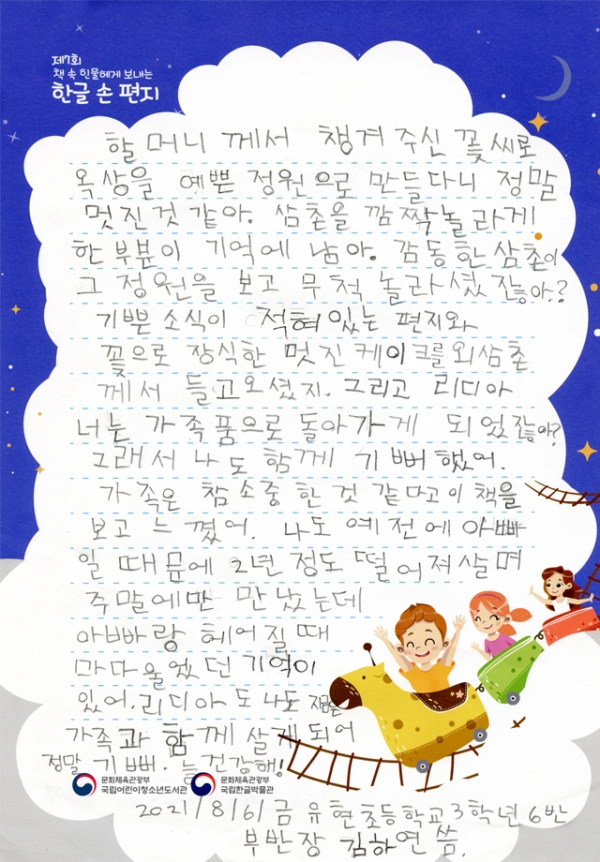 제7회
책 속 인물에게 보내는
한글 손 편지
할머니 께서 챙겨 주신 꽃씨로
옥상을 예쁜 정원으로 만들다니 정말
멋진것 같아. 삼촌을 깜짝놀라게
한 부분이 기억에 남아. 감동한 삼촌이
그 정원을 보고 무척 놀라셨잖아?
기쁜 소식이 적혀있는 편지와
꽃으로 장식한 멋진 케이크를 외삼촌
께서 들고오셨지. 그리고 리디아
너는 가족품으로 돌아가게 되었잖아?
그래서 나도 함께 기뻐했어.
가족은 참 소중한 것 같다고 이 책을
보고 느꼈어. 나도 예전에 아빠
일 때문에 2년 정도 떨어져살며
주말에만 만났는데
아빠랑 헤어질 때
마다울었던 기억이
있어. 리디아 도 나도 지금은
가족과 함께 살게되어
정말 기뻐. 늘건강해!
문화체육관광부
국립어린이청소년도서관
문화체육관광부
국립한글박물관
2021/8/6/금 유현초등학교 3학년 6반
부반장 김하연 씀.